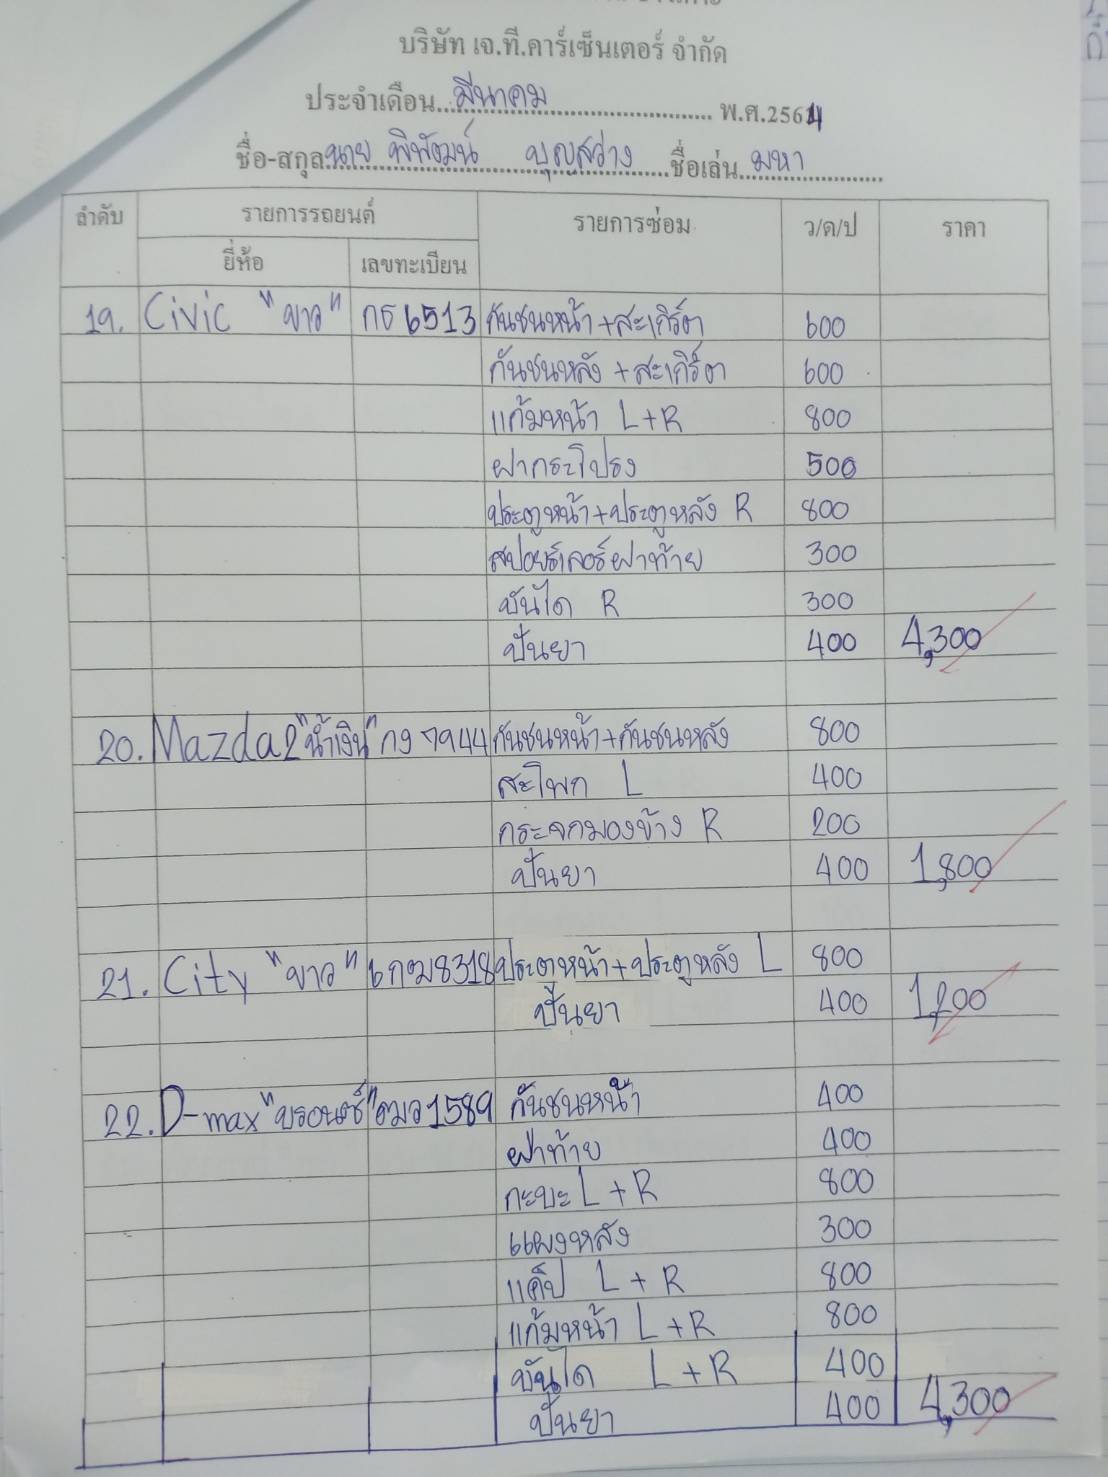 บริษัท เจ.ที.คาร์เซ็นเตอร์ จำกัด
ประจำเดือน...มีนาคม............................ พ.ศ.2564
ชื่อ-สกุล.นาย พิพัฒน์ บุญสว่าง.....ชื่อเล่น..มหา...........
ลำดับ รายการรถยนต์ รายการซ่อม ว/ด/ป ราคา
ยี่ห้อ เลขทะเบียน
19. Civic "ขาว" กธ 6513 กันชนหน้า+สะเกิร์ต 600
กันชนหลัง+สะเกิร์ต 600
แก้มหน้า L+R 800
ฝากระโปรง 500
ประตูหน้า+ประตูหลัง R 800
สปอยร์เลอร์ฝาท้าย 300
บันได R 300
ปั่นยา 400 4,300
20. Mazda2 "น้ำเงิน" กง 7944 กันชนหน้า+กันชนหลัง 800
สะโพก L 400
กระจกมองข้าง R 200
ปั่นยา 400 1,800
21. City "ขาว" 6กฒ8318 ประตูหน้า+ประตูหลัง L 800
ปั่นยา 400 1,200
22. D-max "บรอนซ์" ฒว1589 กันชนหน้า 400
ฝาท้าย 400
กะบะ L+R 800
แผงหลัง 300
แค็ป L+R 800
แก้มหน้า L+R 800
บันได L+R 400
ปั่นยา 400 4,300